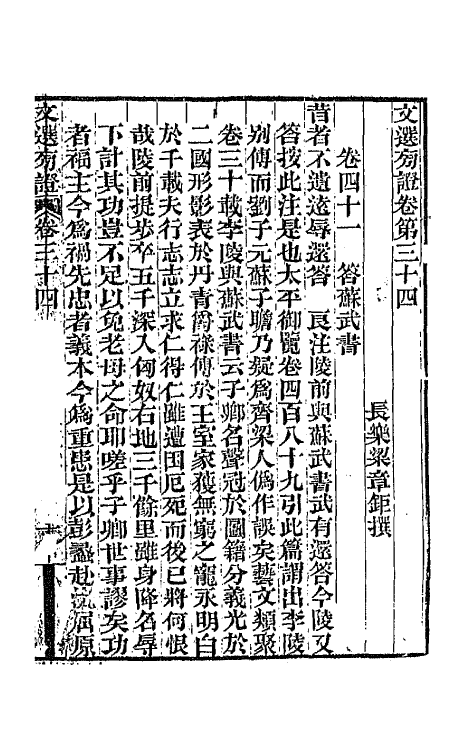 文選旁證卷第三十四
長樂梁章鉅撰
卷四十一　答蘇武書
昔者不遺遠辱還答　良注陵前與蘇武書武有還答今陵又
答按此注是也太平御覽卷四百八十九引此篇謂出李陵
別傳而劉子元蘇子瞻乃疑為齊梁人偽作誤矣藝文類聚
卷三十載李陵與蘇武書云子卿名聲冠於圖籍分義光於
二國形影表於丹青爵祿傳於王室家獲無窮之寵永明白
於千載夫行志志立求仁得仁雖遭困厄死而後已將何恨
哉陵前提步卒五千深入匈奴右地三千餘里雖身降名辱
下計其功豈不足以免老母之命耶嗟乎子卿世事謬矣功
者福主今為禍先忠者義本今為重患是以彭蠡赴流屈原
文選旁證 卷三十四